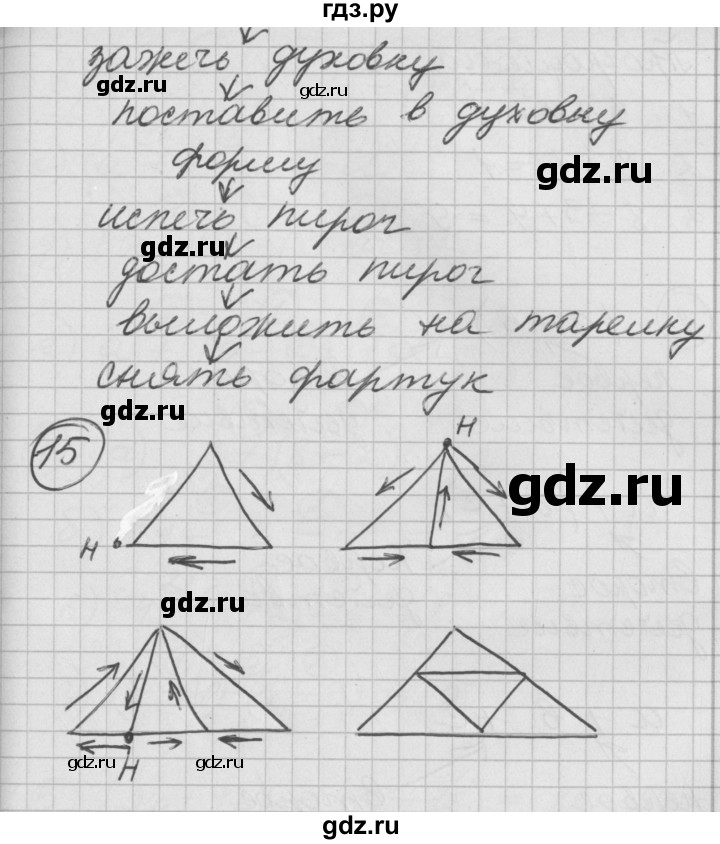 гдз.ру
зажечь духовку
gdz.ru gdz.ru
поставить в духовку
gdz.ru
форму
испечь пирог
gdz.ru
достать пирог
выложить на тарелку
снять фартук
gdz.ru
15
Н
gdz.ru
Н
gdz.ru
gdz.ru gdz.ru
Н
gdz.ru